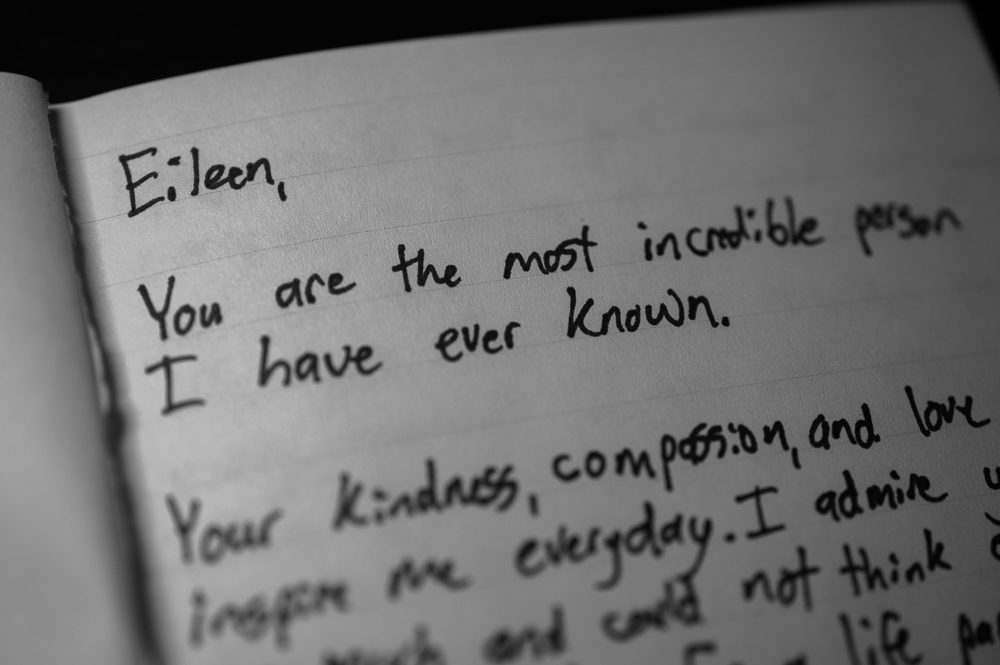 Eileen,
You are the most incredible person
I have ever known.
Your kindness, compassion, and love
inspire me everyday. I admire
much and could not think
life